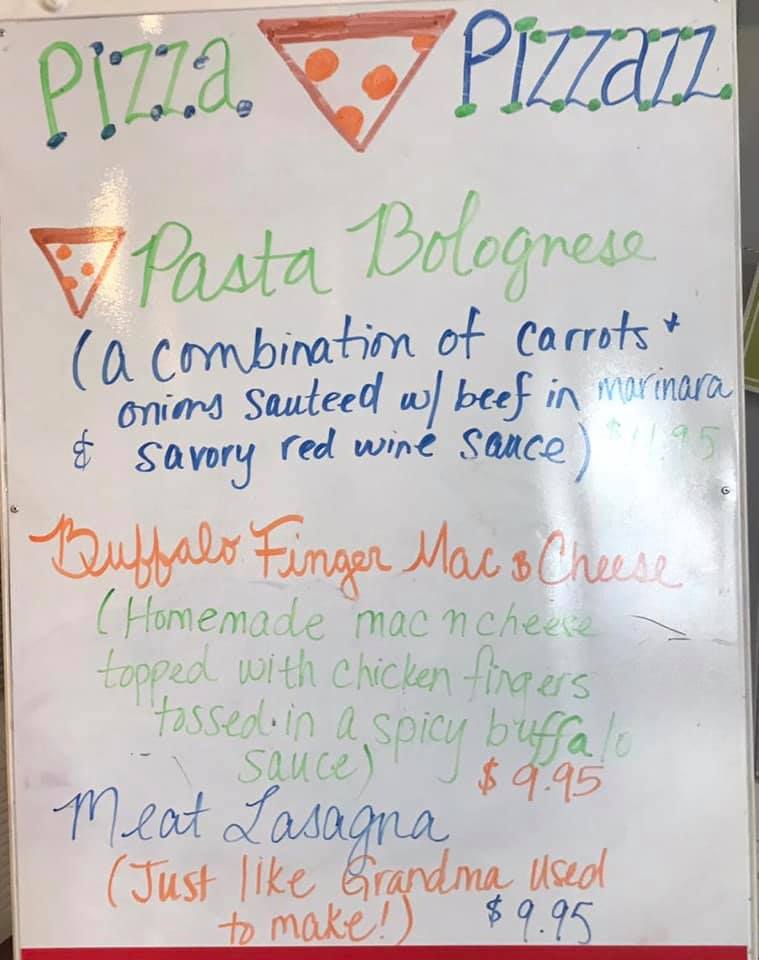 Pizza Pizzazz
Pasta Bolognese
(a combination of carrots +
onions sauteed w/ beef in marinara
& savory red wine sauce) $11.95
Buffalo Finger Mac & Cheese
(Homemade mac n cheese
topped with chicken fingers
tossed in a spicy buffalo
sauce) $9.95
Meat Lasagna
(Just like Grandma used
to make!) $9.95